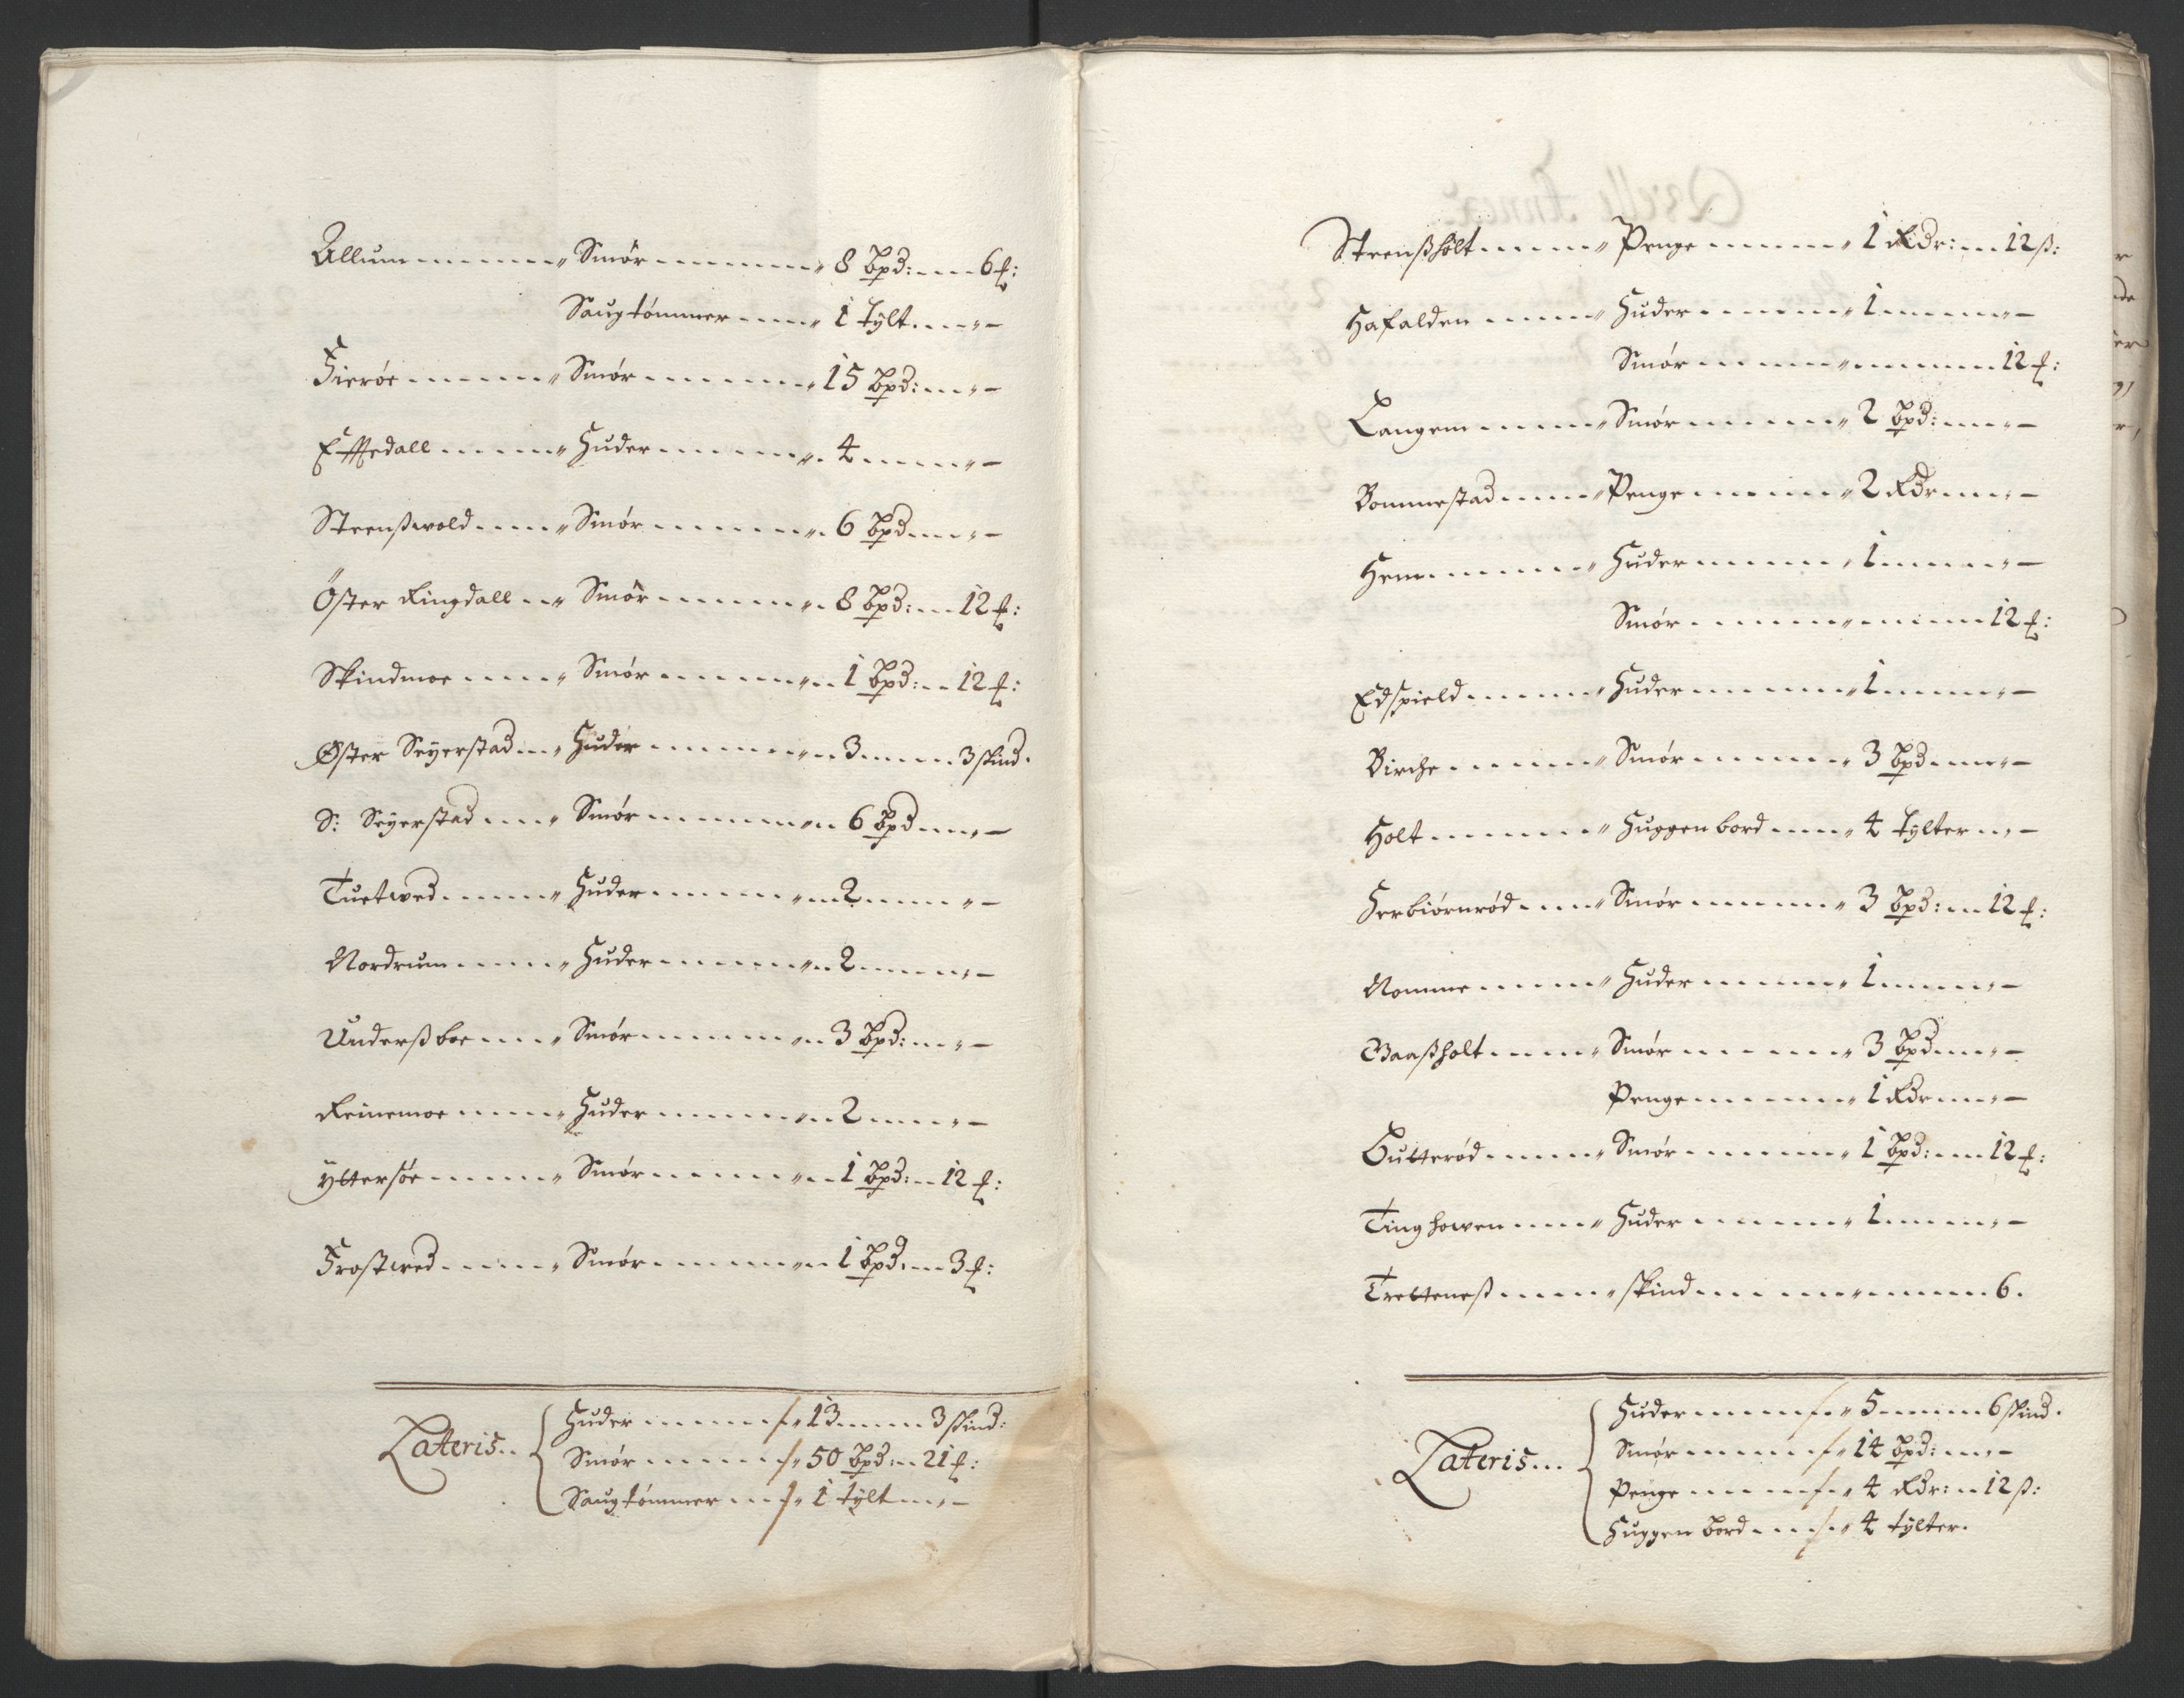 Allum ........ Smør ........ 8 Bpd: .... 6 ℔:
Saugtømmer .... 1 tylt .... -
Fierøe ........ Smør ........ 15 Bpd: .... -
Efftedall ........ Huder ........ 4 ........ -
Steenßwold .... Smør ........ 6 Bpd .... -
Öster Ringdall .. Smør ........ 8 Bpd: .... 12 ℔:
Skindmoe .... Smør ........ 1 Bpd: .. 12 ℔:
Øster Seÿerstad .. Huder ........ 3 .... 3 skind.
S: Seÿerstad .... Smør ........ 6 Bpd .... -
Tuetwed ........ Huder ........ 2 ........ -
Nordrum ........ Huder ........ 2 ........ -
Underßboe .... Smør ........ 3 Bpd: .... -
Reinemoe .... Huder ........ 2 ........ -
Yttersøe ........ Smør ........ 1 Bpd: .. 12 ℔:
Frostwed ........ Smør ........ 1 Bpd .... 3 ℔:
Lateris ..
Huder ........ 13 ........ 3 skind:
Smør ........ 50 Bpd: .. 21 ℔:
Saugtømmer .... 1 tylt .... -
Steenßholt ........ Penge ........ 1 Rdr: .... 12 ß:
Hafalden ........ Huder ........ 1 ........ -
Smør ........ 12 ℔:
Langem ........ Smør ........ 2 Bpd: .... -
Bommestad ........ Penge ........ 2 Rdr .... -
Hem ........ Huder ........ 1 ........ -
Smør ........ 12 ℔:
Edspield ........ Huder ........ 1 ........ -
Birche ........ Smør ........ 3 Bpd .... -
Holt ........ Huggenbord .... 4 tylter .. -
Herbiørnrød .... Smør ........ 3 Bpd: .... 12 ℔:
Nomme ........ Huder ........ 1 ........ -
Baaßholt ........ Smør ........ 3 Bpd .... -
Penge ........ 1 Rdr .... -
Gutterød ........ Smør ........ 1 Bpd: .... 12 ℔:
Tinghowen .... Huder ........ 1 ........ -
Tretteneß ........ skind ........ 6.
Lateris ...
Huder ........ 5 ........ 6 skind.
Smør ........ 14 Bpd: .... -
Penge ........ 4 Rdr: .. 12 ß:
Huggenbord .... 4 tÿlter.